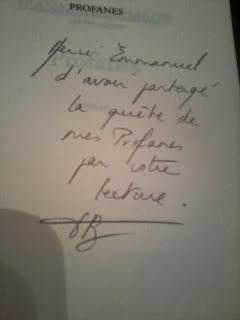 PROFANES
Merci Emmanuel
d'avoir partagé
la quête de
mes Profanes
par votre
lecture.
JB